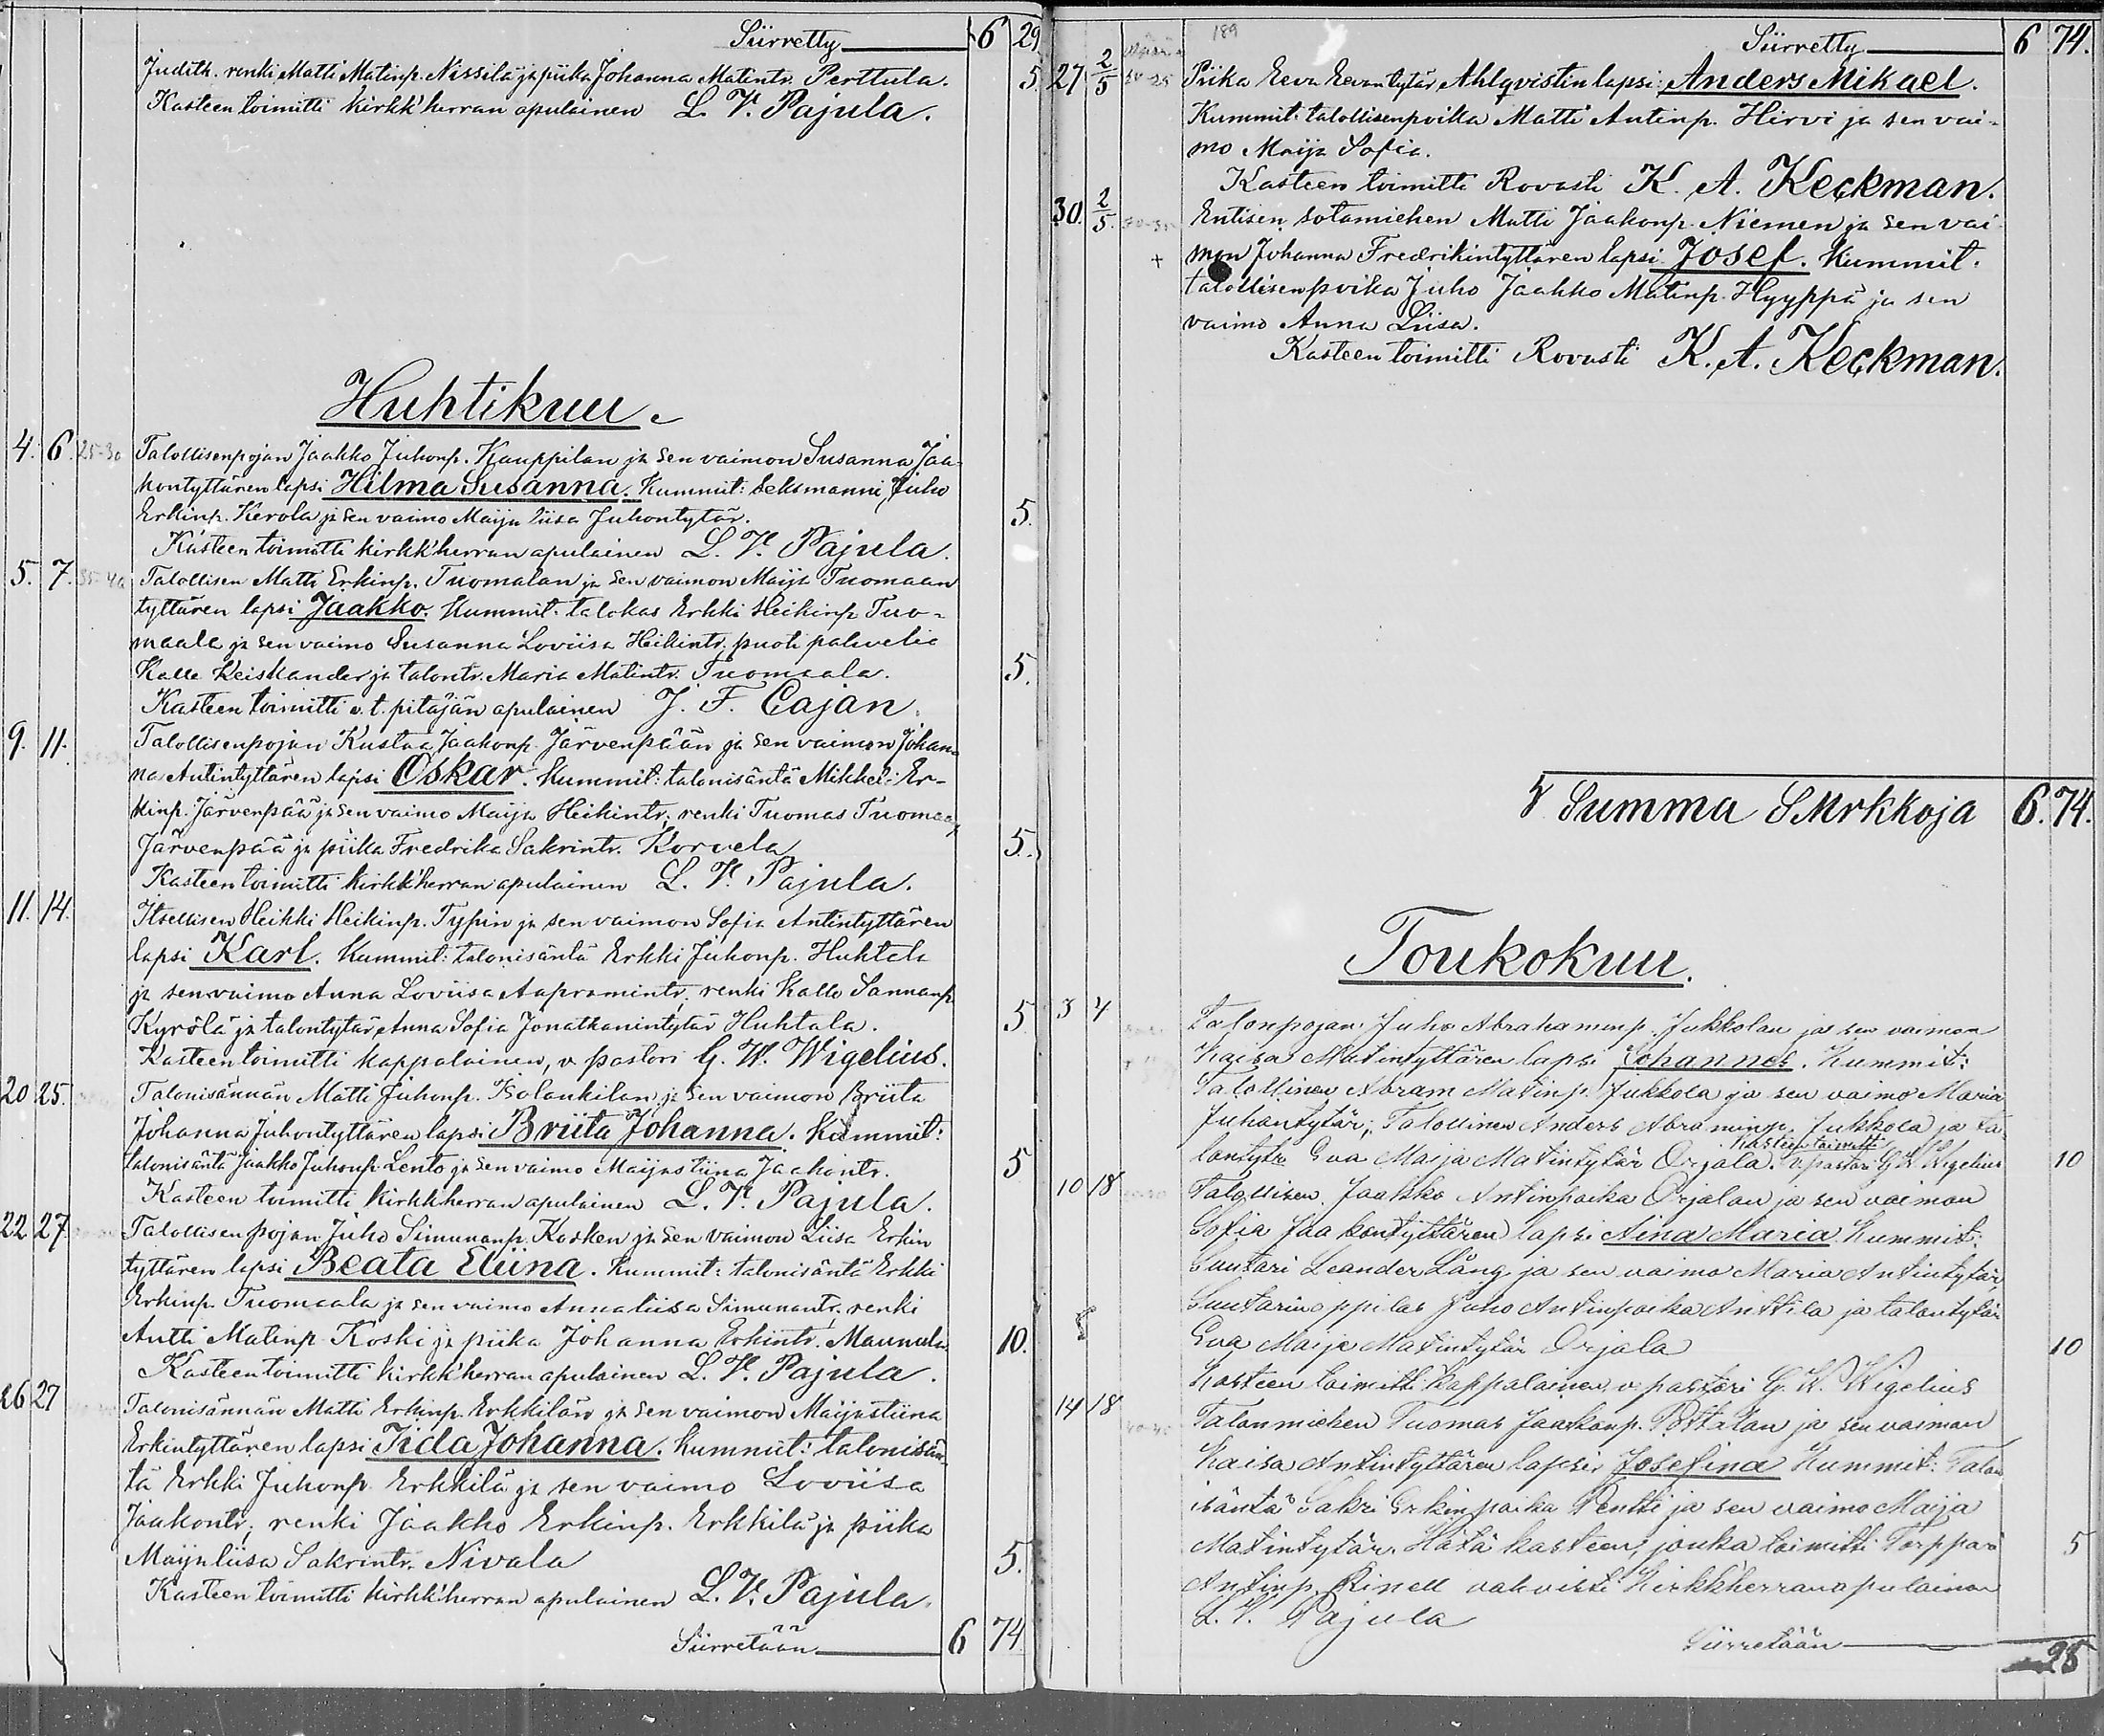 Siirretty 6 29
Judith. renki Matti Matinp. Nissilä ja piika Johanna Matintr. Perttula. 5
Kasteen toimitti kirkk'herran apulainen L. V. Pajula.
Huhtikuu.
4. 6. 25-30 Talollisenpojan Jaakko Juhonp. Kauppilan ja sen vaimon Susanna Jaa-
kontyttären lapsi Hilma Susanna. Kummit: Seksmanni Juho
Erkinp. Kerola ja sen vaimo Maija Liisa Juhontytär. 5.
Kasteen toimitti kirkk'herran apulainen L. V. Pajula.
5. 7. 35-40 Talollisen Matti Erkinp. Tuomalan ja sen vaimon Maija Tuomaan
tyttären lapsi Jaakko. Kummit: talokas Erkki Heikinp. Tuo-
maala ja sen vaimo Susanna Loviisa Heikintr. puoti palvelia
Kalle Keiskander ja talontr. Maria Matintr. Tuomaala. 5.
Kasteen toimitti v. t. pitäjän apulainen J. F. Cajan.
9. 11. Talollisenpojan Kustaa Jaakonp. Järvenpään ja sen vaimon Johan-
na Antintyttären lapsi Oskar. Kummit: talonisäntä Mikkeli Er-
kinp. Järvenpää ja sen vaimo Maija Heikintr, renki Tuomas Tuomaap
Järvenpää ja piika Fredrika Sakrintr. Korvela 5.
Kasteen toimitti kirkk'herran apulainen L. V. Pajula.
11. 14. Itsellisen Heikki Heikinp. Typin ja sen vaimon Sofia Antintyttären
lapsi Karl. Kummit: talonisäntä Erkki Juhonp. Huhtala
ja sen vaimo Anna Loviisa Aapramintr, renki Kalle Sannanp.
Kyrölä ja talontytär Anna Sofia Jonathanintytär Huhtala. 5
Kasteen toimitti kappalainen, v. pastori G. W. Wigelius.
20 25. Talonisännän Matti Juhonp. Isolankilan ja sen vaimon Briita
Johanna Juhontyttären lapsi Briita Johanna. Kummit:
talonisäntä Jaakko Juhonp. Lento ja sen vaimo Maijastiina Jaakontr. 5
Kasteen toimitti kirkkherran apulainen L. V. Pajula.
22 27. Talollisenpojan Juho Simunanp. Kosken ja sen vaimon Liisa Erkin
tyttären lapsi Beata Eliina. Kummit: talonisäntä Erkki
Erkinp. Tuomaala ja sen vaimo Annaliisa Simunantr, renki
Antti Matinp. Koski ja piika Johanna Erkintr. Maunula. 10.
Kasteen toimitti kirkk'herran apulainen L. V. Pajula.
26 27 Talonisännän Matti Erkinp. Erkkilän ja sen vaimon Maijastiina
Erkintyttären lapsi Iida Johanna. Kummit: talonisän-
tä Erkki Juhonp. Erkkilä ja sen vaimo Loviisa
Jaakontr, renki Jaakko Erkinp. Erkkilä ja piika
Maijaliisa Sakrintr. Nivala 5.
Kasteen toimitti kirkk'herran apulainen L. V. Pajula.
Siirretään 6 74
189 Siirretty 6 74.
27 2/5 Piika Eeva Eevantytär Ahlqvistin lapsi: Anders Mikael.
Kummit: talollisenpoika Matti Antinp. Hirvi ja sen vai-
mo Maija Sofia.
Kasteen toimitti Rovasti K. A. Keckman.
30. 2/5. Entisen sotamiehen Matti Jaakonp. Niemen ja sen vai
+ mon Johanna Fredrikintyttären lapsi Josef. Kummit:
talollisenpoika Juho Jaakko Matinp. Hyyppä ja sen
vaimo Anna Liisa.
Kasteen toimitti Rovasti K. A. Keckman.
Summa SMrkkoja 6. 74.
Toukokuu.
3 4 Talonpojan Juho Abrahaminp. Jukkolan ja sen vaimon
Kaisa Matintyttären lapsi Johannes. Kummit:
Talollinen Abram Matinp. Jukkola ja sen vaimo Maria
Juhantytär; Talollinen Anders Abraminp. Jukkola ja ta-
Kasteen toimitti
lontytr. Eva Maija Matintytär Orjala. v. pastori G W Wigelius 10
10 18 Talollisen Jaakko Antinpoika Orjalan ja sen vaimon
Sofia Jaakontyttären lapsi Aina Maria. Kummit:
Suutari Leander Lång ja sen vaimo Maria Antintytär,
Suutarin oppilas Juho Antinpoika Anttila ja talontytär
Eva Maija Matintytär Orjala 10
Kasteen toimitti kappalainen v. pastori G. W. Wigelius
14 18 Talonmiehen Tuomas Jaakonp. Pottalan ja sen vaimon
Kaisa Antintyttären lapsi Josefina Kummit: Talon
isäntä Sakri Erkinpoika Pentti ja sen vaimo Maija
Matintytär. Hätä kasteen, jonka toimitti Torppari 5
Antinp. Rinell vahvisti Kirkkherranapulainen
L. V. Pajula
Siirretään 25